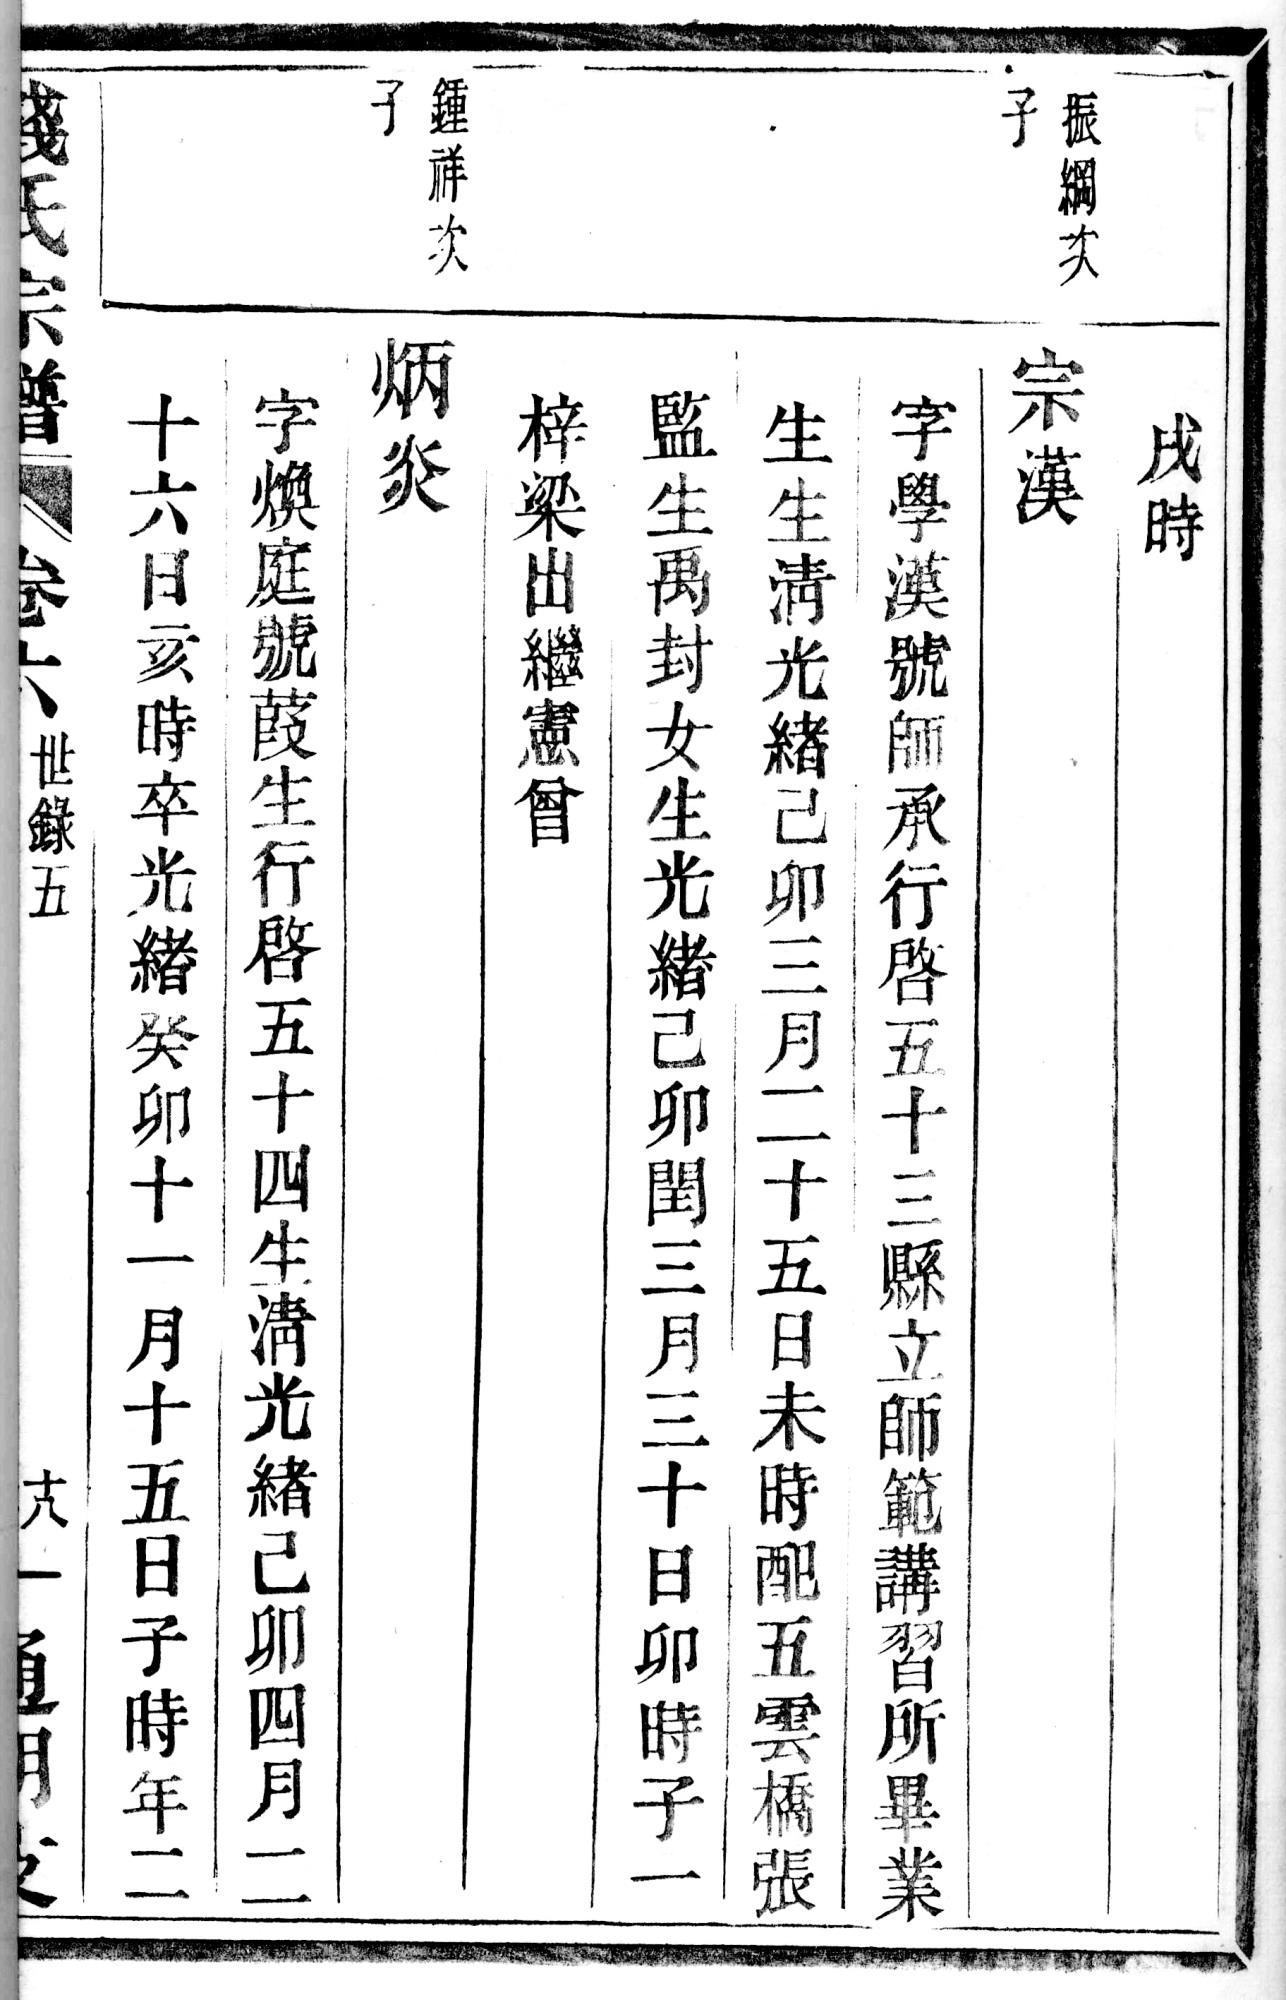 戌時
振綱次
子
宗漢
字學漢號師承行啓五十三縣立師範講習所畢業
生生清光緒己卯三月二十五日未時配五雲橋張
監生禹封女生光緒己卯閏三月三十日卯時子一
梓梁出繼憲曾
鍾祥次
子
炳炎
字煥庭號葭生行啓五十四生清光緒己卯四月二
十六日亥時卒光緒癸卯十一月十五日子時年二
錢氏宗譜 卷六 世錄五 十八 通明支